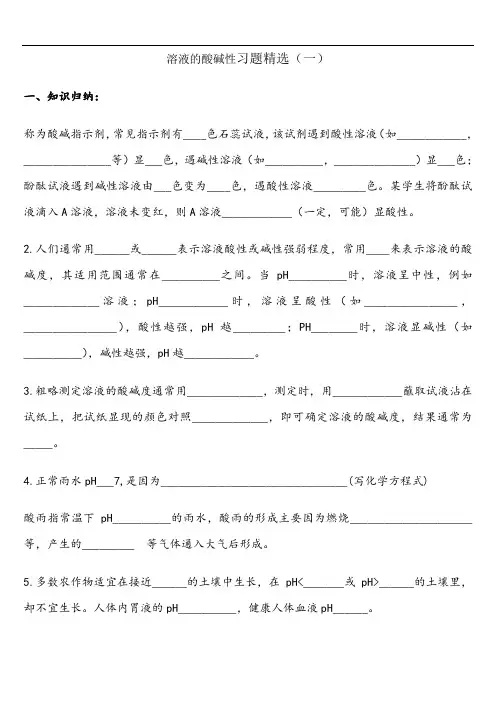 溶液的酸碱性习题精选（一）
一、知识归纳：
称为酸碱指示剂，常见指示剂有____色石蕊试液，该试剂遇到酸性溶液（如____________，
_______________等）显___色，遇碱性溶液（如__________，______________）显___色；
酚酞试液遇到碱性溶液由___色变为____色，遇酸性溶液_________色。某学生将酚酞试
液滴入A溶液，溶液未变红，则A溶液____________（一定，可能）显酸性。
2.人们通常用______或______表示溶液酸性或碱性强弱程度，常用____来表示溶液的酸
碱度，其适用范围通常在__________之间。当 pH__________时，溶液呈中性，例如
_____________溶液；pH____________时，溶液呈酸性（如________________，
________________），酸性越强，pH 越_________；PH________时，溶液显碱性（如
__________），碱性越强，pH越____________。
3.粗略测定溶液的酸碱度通常用_____________，测定时，用____________蘸取试液沾在
试纸上，把试纸显现的颜色对照_____________，即可确定溶液的酸碱度，结果通常为
_____。
4.正常雨水pH___7,是因为________________________________(写化学方程式)
酸雨指常温下 pH__________的雨水，酸雨的形成主要因为燃烧_____________________
等，产生的_________ 等气体通入大气后形成。
5.多数农作物适宜在接近______的土壤中生长，在 pH<_______或 pH>______的土壤里，
却不宜生长。人体内胃液的pH__________，健康人体血液pH______。